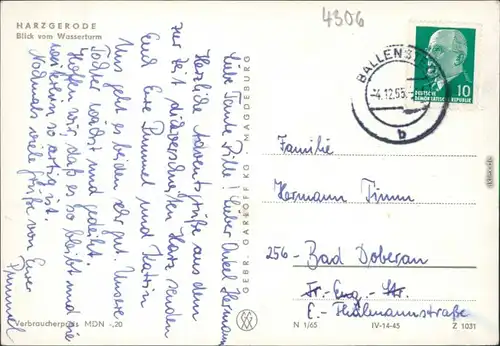 HARZGERODE
Blick vom Wasserturm
4306
Liebe Tante Bille! Lieber Onkel Hermann
Herzliche Adventsgrüße aus dem
zur Zeit tiefverschneiten Harz senden
Euch Eure Pummel und Katrin
Uns geht es beiden sehr gut. Unsere
Tochter wächst und gedeiht.
Hoffen wir, daß es so bleibt und sie
weiterhin so artig ist.
Nochmals viele Grüße von Eurer
Pummel
Verbraucherpreis MDN -,20
GEBR. GARLOFF KG. MAGDEBURG
BALLENSTEDT
-4.12.65.-
b
10
DEUTSCHE
DEMOKRATISCHE REPUBLIK
Familie
Hermann Timm
256- Bad Doberan
Fr.-Eng.-Str.
E.-Thälmannstraße
N 1/65 IV-14-45 Z 1031